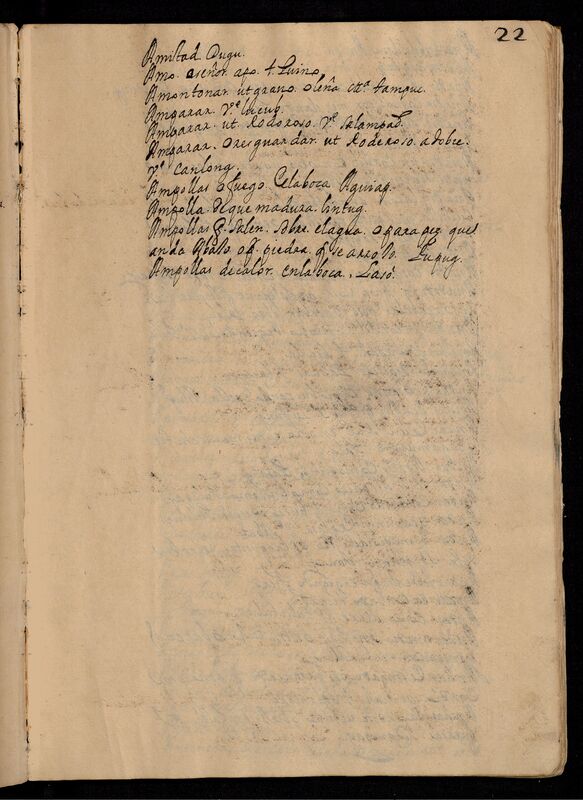 22
Amistad. Dugu.
Amo. o señor. apo. t. Puino.
Amontonar. ut grano. o leña etta. tamque.
Amparar. Vde. Lucub.
Amparar. ut. Poderoso. Vde. Salampad.
Amparar. o resguardar. ut Poderoso. a dobre.
Vde. Canlong.
Ampollas o fuego. en la boca. Aguiaq.
Ampolla. de quemadura. lintug.
Ampollas q. salen. sobre. el agua. o para pez. ques
anda Abaxo. o q. piedra. q. se arrojo. Lupug.
Ampollas de calor. en la boca. Lasò.